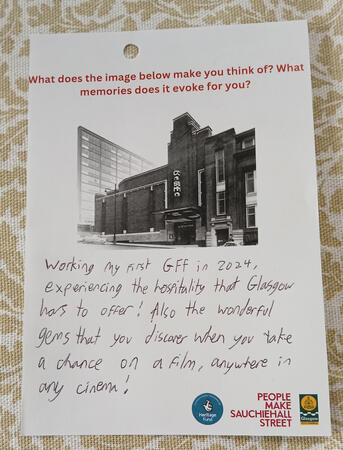 What does the image below make you think of? What
memories does it evoke for you?
Working my first GFF in 2024,
experiencing the hospitality that Glasgow
has to offer! Also the wonderful
gems that you discover when you take
a chance on a film, anywhere in
any cinema!
Heritage
Fund
PEOPLE
MAKE
SAUCHIEHALL
STREET
Glasgow